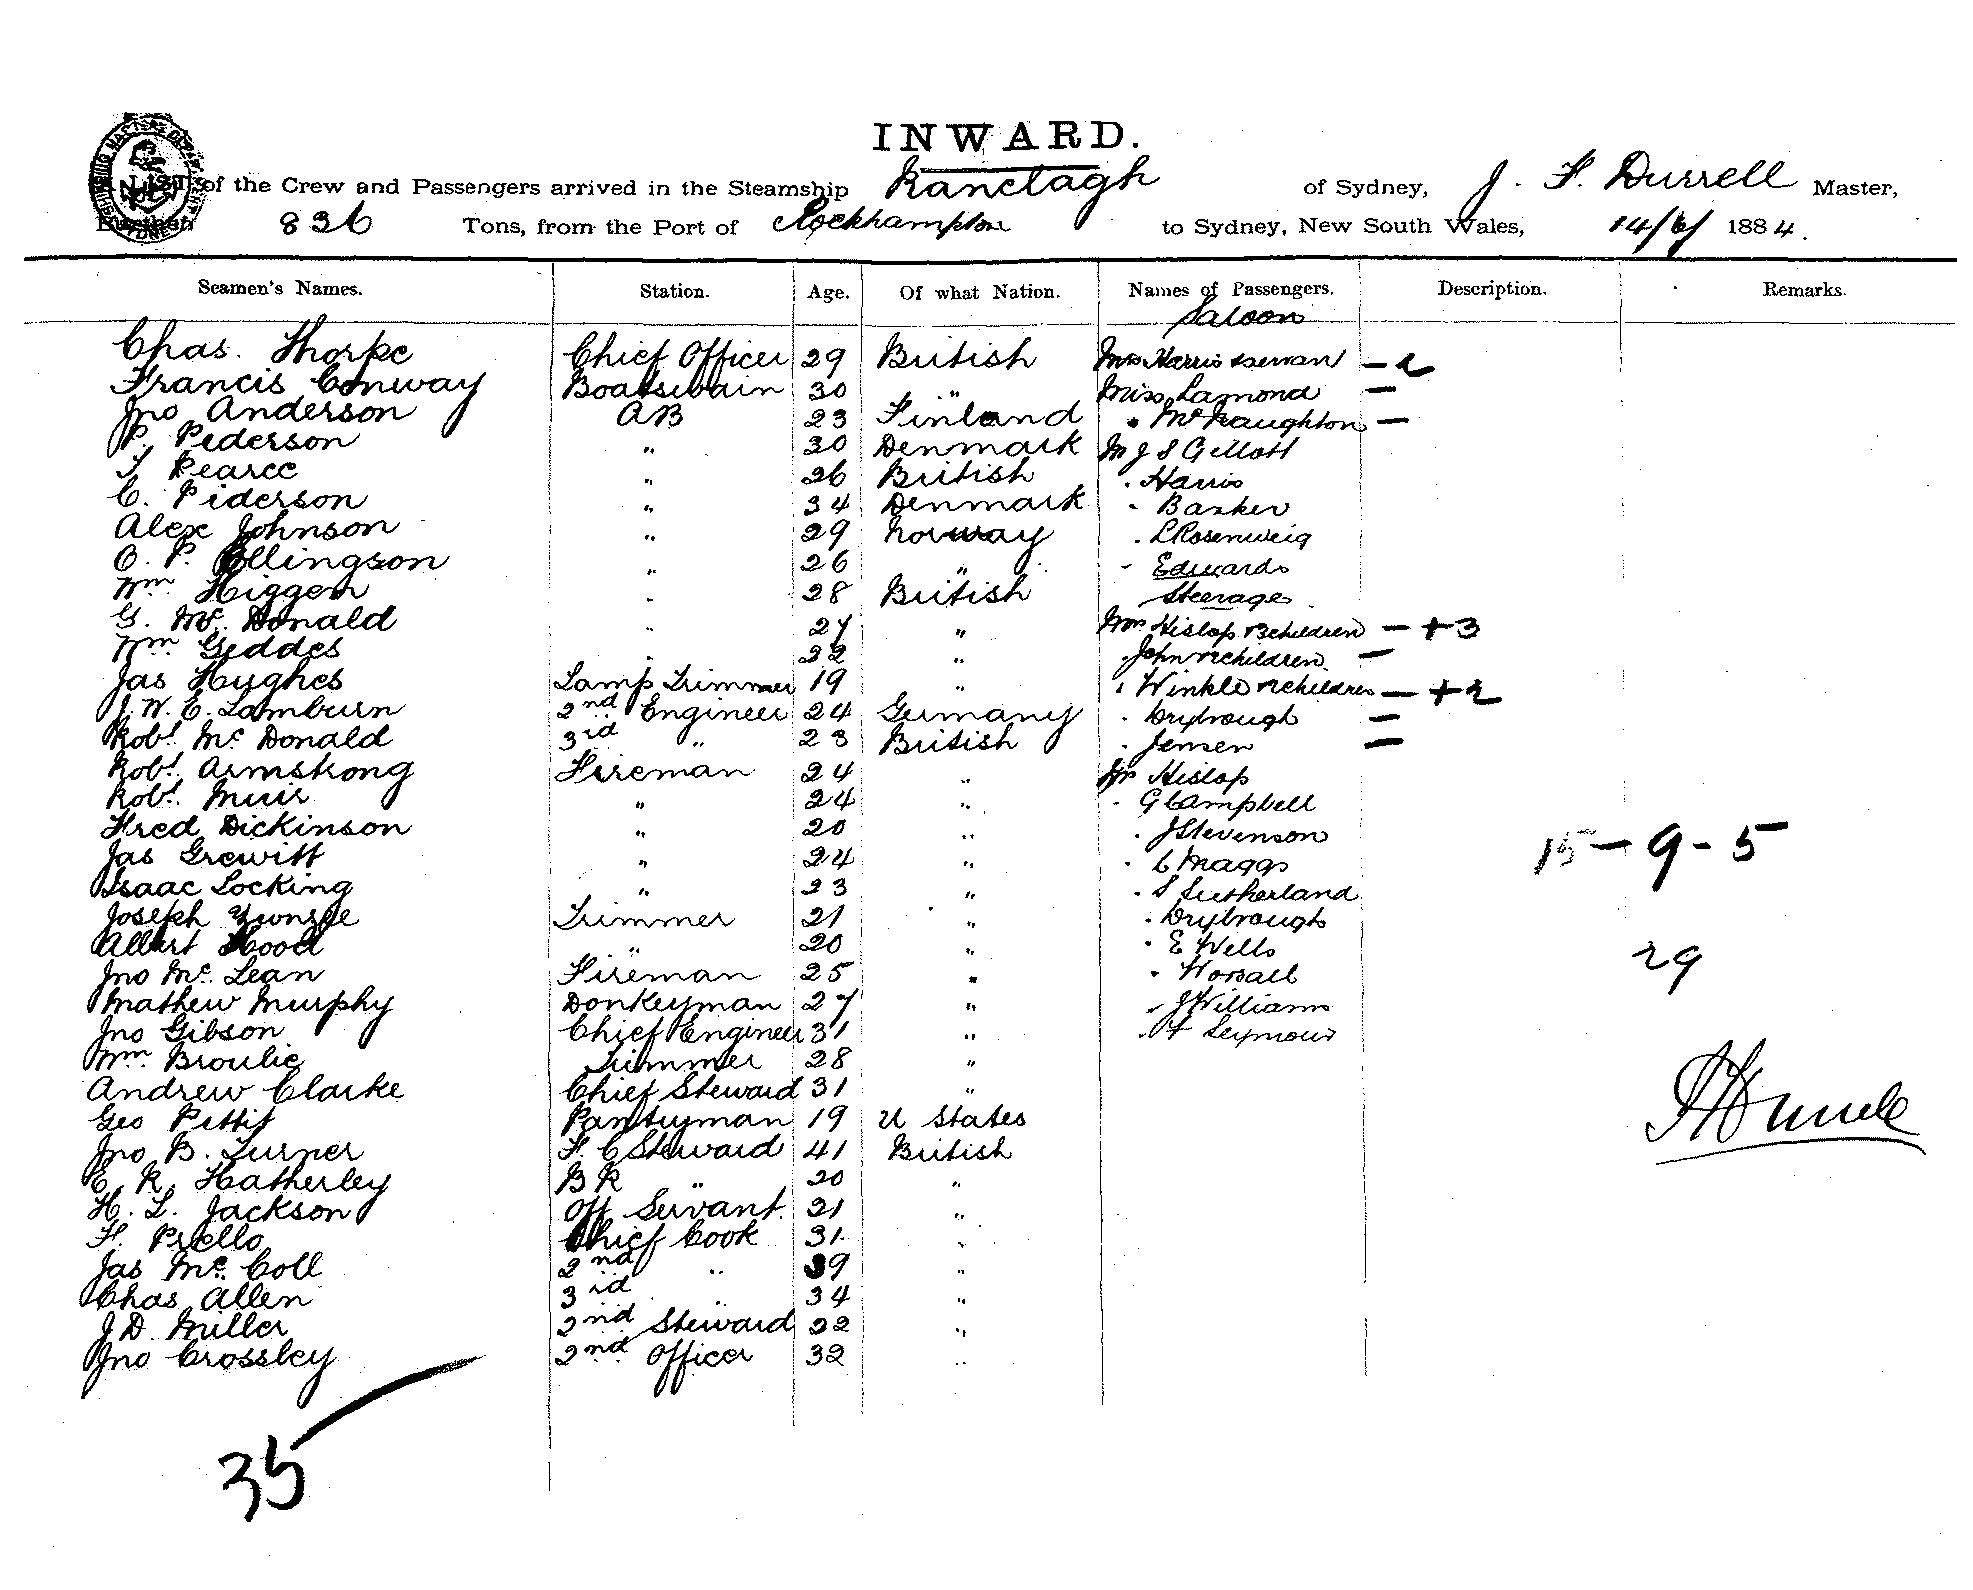 INWARD.
of the Crew and Passengers arrived in the Steamship Ranelagh of Sydney, J. F. Durrell Master,
836 Tons, from the Port of Rockhampton to Sydney, New South Wales, 14/6/ 1884.
Seamen's Names. Station. Age. Of what Nation. Names of Passengers. Description. Remarks.
Saloon
Chas. Thorpe Chief Officer 29 British Mrs Harris & servant - 2
Francis Conway Boatswain 30 " Miss Lamond -
Jno Anderson AB 23 Finland " McNaughton -
P. Pederson " 30 Denmark Mr J S Gillott
T Pearce " 26 British " Harris
C. Pederson " 34 Denmark " Barker
Alex Johnson " 29 Norway " L Rosenweig
O. P. Ellingson " 26 " " Edwards
Wm Higgem " 28 British Steerage
G. Mc Donald " 27 " Mrs Hislop & 3 children - + 3
Wm Geddes " 22 " " John children -
Jas Hughes Lamp Trimmer 19 " " Winkle & 2 children - + 2
J. W. C. Lamburn 2nd Engineer 24 Germany " Drybrough -
Robt Mc Donald 3rd " 23 British " Jensen -
Robt Armstrong Fireman 24 " Mr Hislop
Robt Muir " 24 " " G Campbell
Fred Dickinson " 20 " " J Stevenson
Jas Grewitt " 24 " " C Maggs
15 - 9 - 5
Isaac Locking " 23 " " S Sutherland
Joseph Trimmer 21 " " Drybrough
Albert Hood " 20 " " E Wells
29
Jno Mc Lean Fireman 25 " " Worsall
Mathew Murphy Donkeyman 27 " " J Williams
Jno Gibson Chief Engineer 31 " " F Seymour
Wm Broulie Trimmer 28 "
Andrew Clarke Chief Steward 31 "
Geo Pettit Pantryman 19 U States
Jno B. Turner F. C Steward 41 British
E. R. Hatherley B R " 20 "
H. L. Jackson Off Servant. 21 "
F. Prello Chief Cook 31 "
Jas Mc Coll 2nd " 39 "
Chas Allen 3rd " 34 "
J D Miller 2nd Steward 22 "
Jno Crossley 2nd Officer 32 "
35